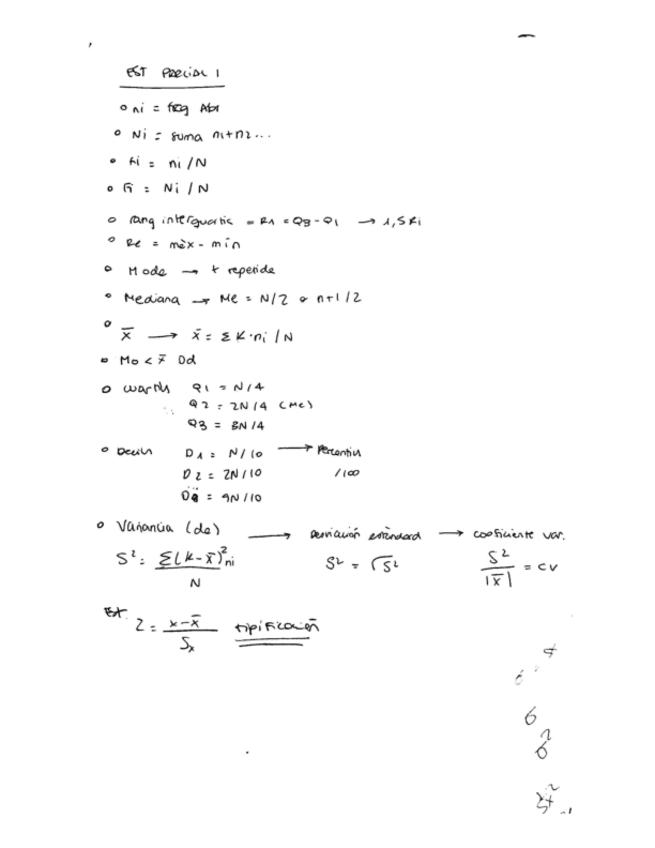 EST PARCIAL 1
ni = freq Abs
Ni = suma n1+n2...
fi = ni/N
Fi = Ni/N
rang interquartic = Ri = Q3-Q1 → 1,5Ri
Re = màx - mín
Moda → + repetida
Mediana → Me = N/2 o n+1/2
x̄ → x̄ = Σ K·ni /N
Mo < x̄ Dd
Q1 = N/4
Q2 = 2N/4 (Me)
Q3 = 3N/4
Decils D1 = N/10 → Percentils
D2 = 2N/10 /100
D9 = 9N/10
Variancia (de) → Desviación estándard → coeficiente var.
S² = Σ(K-x̄)²ni / N S² = √S² S² / |x̄| = CV
Est.
Z = x-x̄ / Sx tipificación
6
6